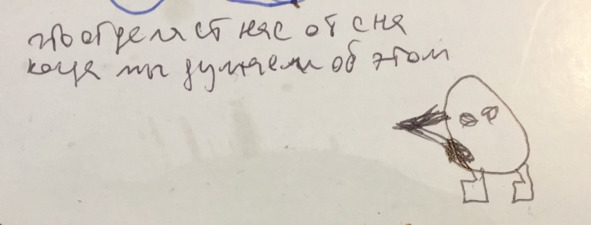 что отделяет нас от сна
когда мы думаем об этом